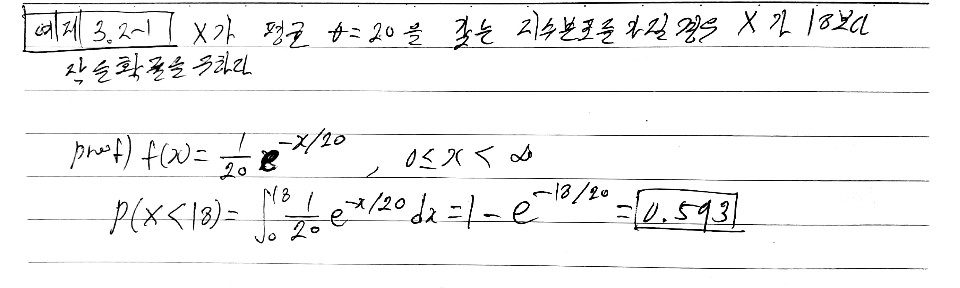 예제 3.2-1 X가 평균 θ=20을 갖는 지수분포를 가질 경우 X가 18보다
작을 확률을 구하라
proof) f(x) = 1/20 e^{-x/20}, 0 ≤ x < ∞
P(X<18) = ∫_0^{18} 1/20 e^{-x/20} dx = 1 - e^{-18/20} = 0.593